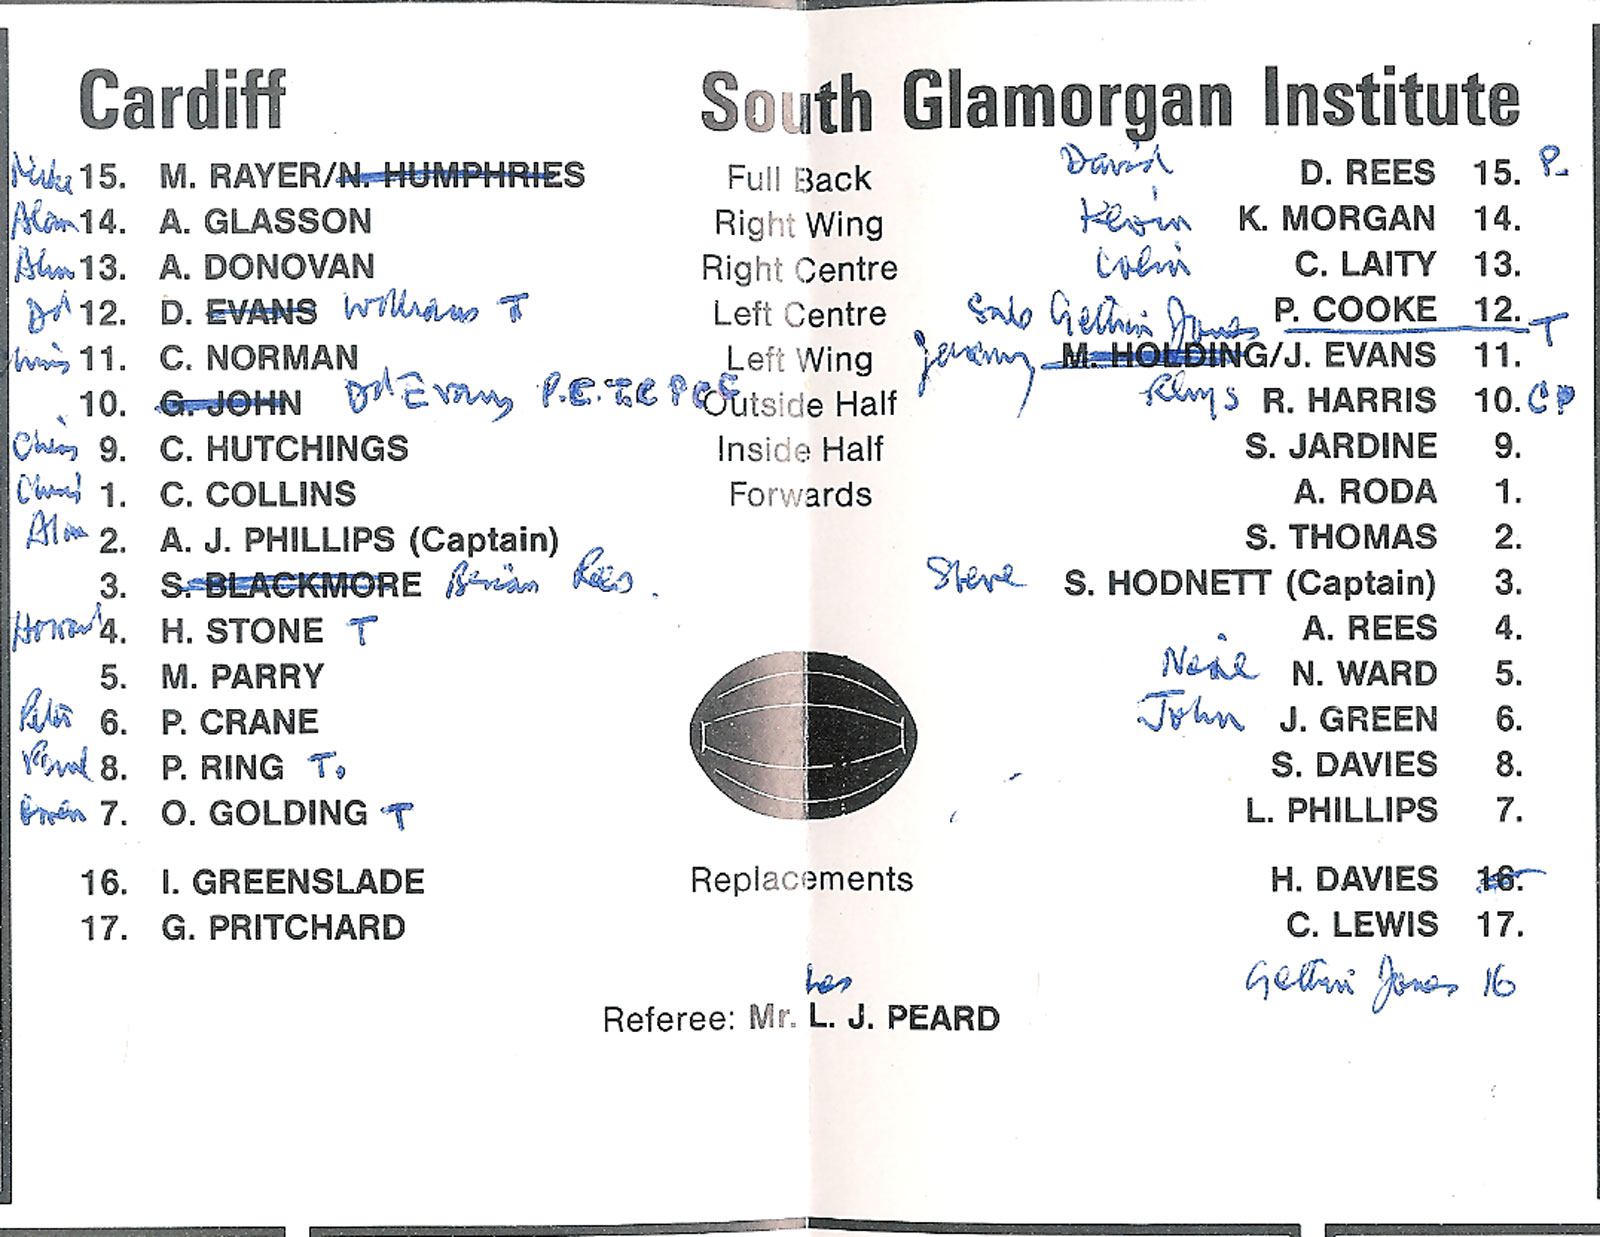 Cardiff South Glamorgan Institute
David
Mike 15. M. RAYER/N. HUMPHRIES Full Back D. REES 15. P.
Alan 14. A. GLASSON Right Wing Kevin K. MORGAN 14.
Alun 13. A. DONOVAN Right Centre Colin C. LAITY 13.
12. D. EVANS Williams T Left Centre Sub Gethin Jones P. COOKE 12.
Chris 11. C. NORMAN Left Wing Jeremy M. HOLDING/J. EVANS 11. T
10. G. JOHN Evans Outside Half Rhys R. HARRIS 10. C P
Chris 9. C. HUTCHINGS Inside Half S. JARDINE 9.
1. C. COLLINS Forwards A. RODA 1.
Alan 2. A. J. PHILLIPS (Captain) S. THOMAS 2.
3. S. BLACKMORE Brian Rees Steve S. HODNETT (Captain) 3.
Howard 4. H. STONE T A. REES 4.
5. M. PARRY N. WARD 5.
Peter 6. P. CRANE John J. GREEN 6.
Paul 8. P. RING T. S. DAVIES 8.
Owen 7. O. GOLDING T L. PHILLIPS 7.
16. I. GREENSLADE Replacements H. DAVIES 16.
17. G. PRITCHARD C. LEWIS 17.
Gethin Jones 16
Les
Referee: Mr. L. J. PEARD